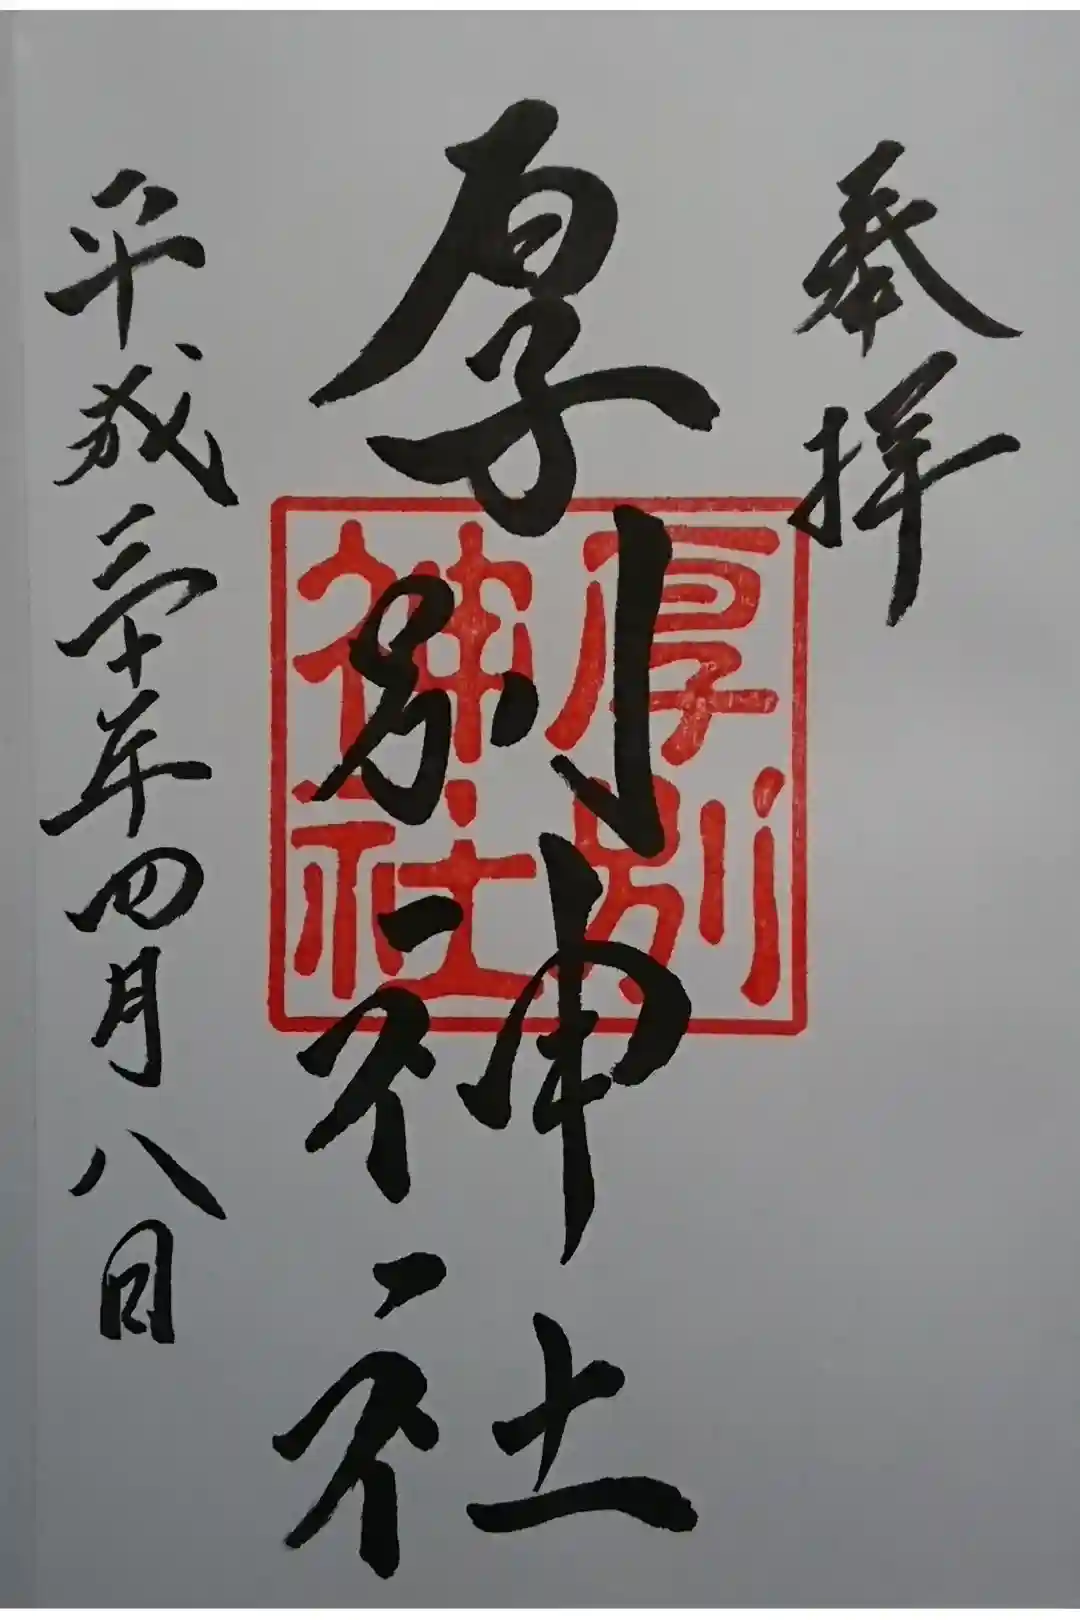 奉拝
厚別神社
厚別
神社
平成三十年四月八日